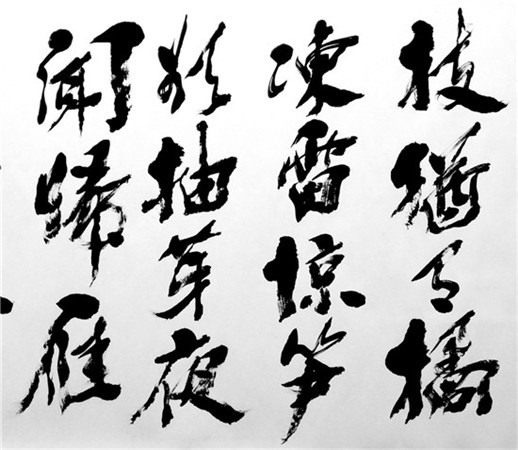 枝猶有橘
凍雷惊笋
欲抽芽夜
聞歸雁